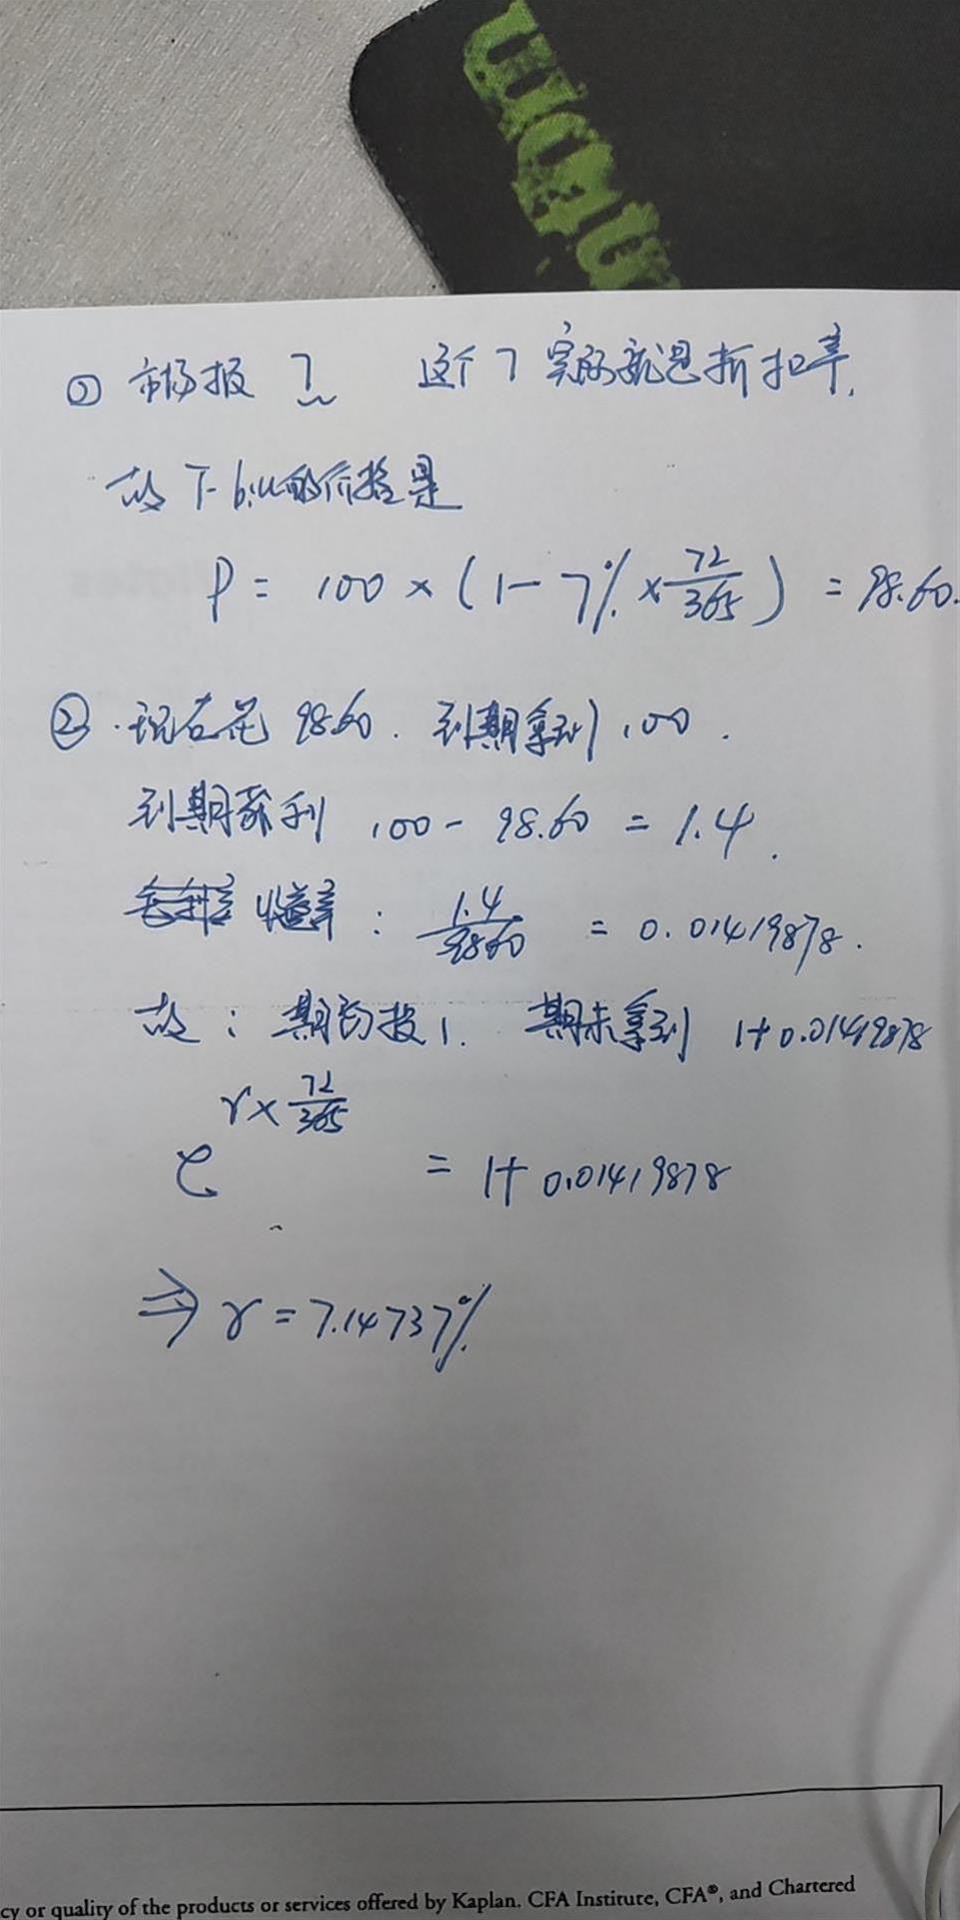 ① 市场报 7 这个7 实际就是折扣率.
故 T-bill的价格是
P = 100 × (1 - 7% × 72/365) = 98.60.
② 现在花 98.60. 到期拿到 100.
到期获利 100 - 98.60 = 1.4.
收益率: 1.4/98.60 = 0.01419878.
故: 期初投1. 期末拿到 1+0.01419878
e^(r × 72/365) = 1+ 0.01419878
⇒ r = 7.14737%
cy or quality of the products or services offered by Kaplan. CFA Institute, CFA®, and Chartered